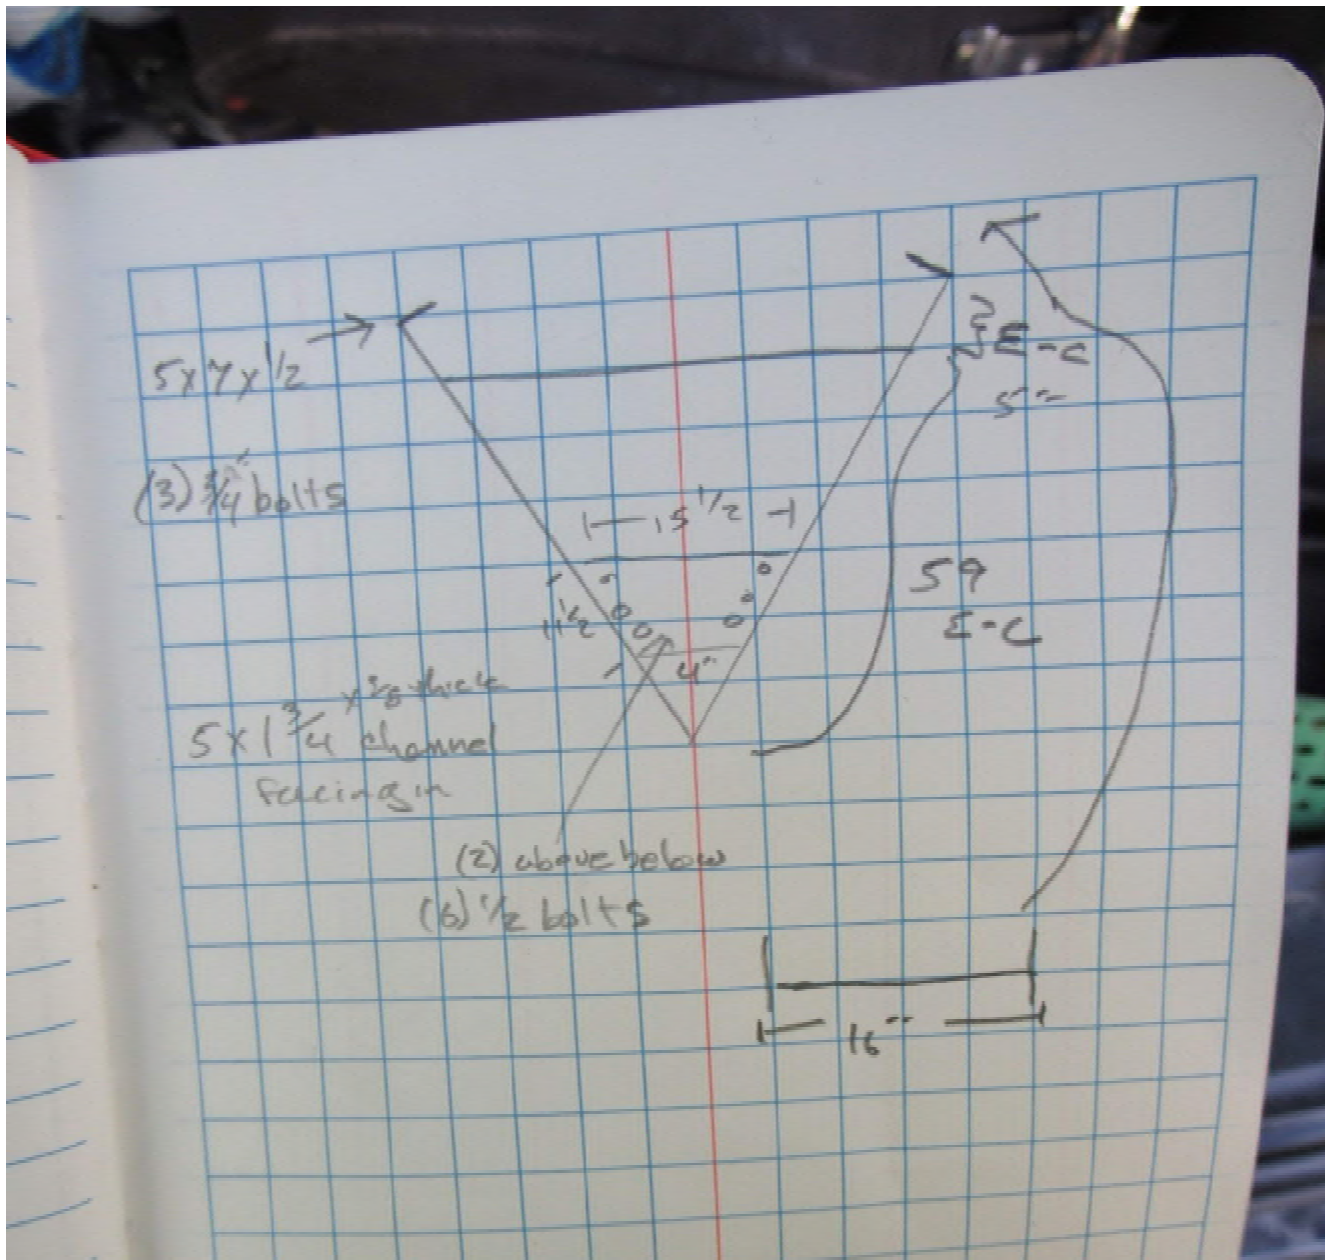 5 x 7 x 1/2
E-C
5"
(3) 3/4" bolts
15 1/2
59
E-C
11 1/2
4"
x 3/8 thick
5 x 1 3/4 channel
facing in
(2) above below
(6) 1/2 bolts
16"